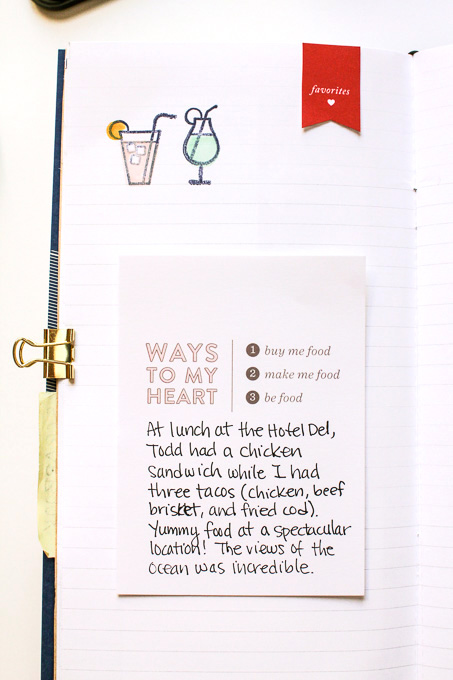 favorites
WAYS
TO MY
HEART
1 buy me food
2 make me food
3 be food
At lunch at the Hotel Del,
Todd had a chicken
sandwich while I had
three tacos (chicken, beef
brisket, and fried cod).
Yummy food at a spectacular
location! The views of the
ocean was incredible.